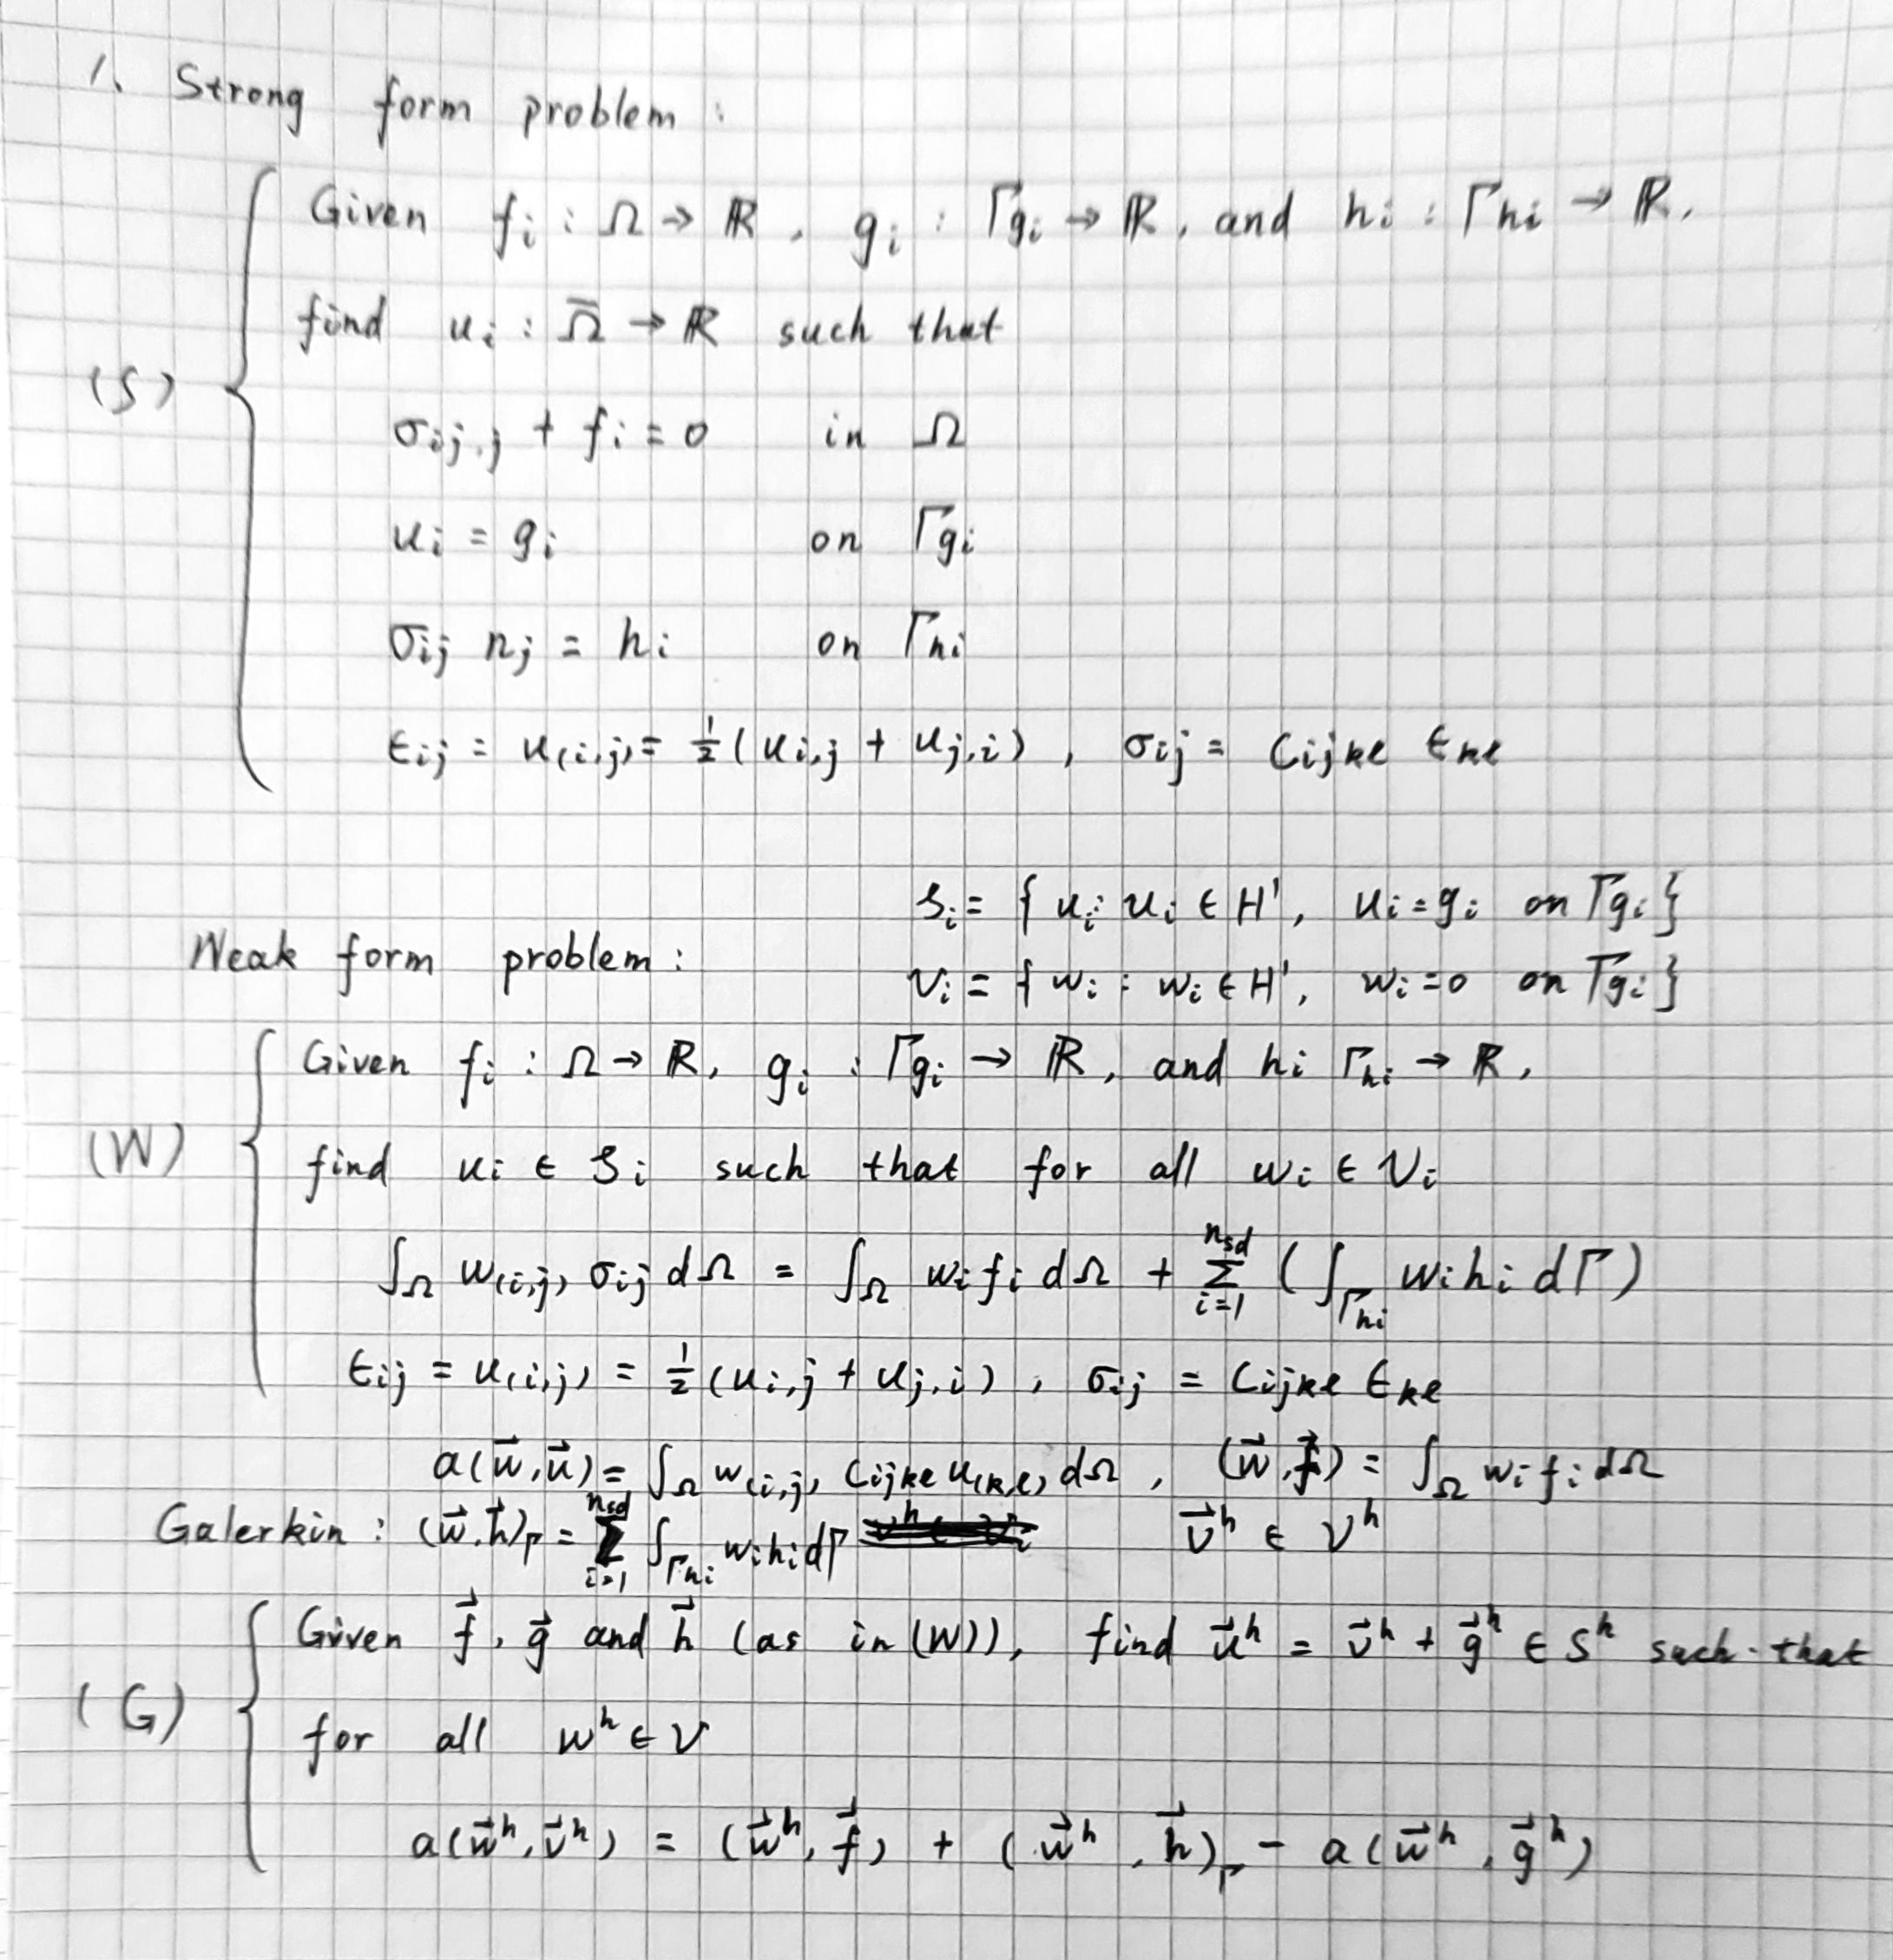 1. Strong form problem :
Given f_i : Ω → ℝ, g_i : Γ_{g_i} → ℝ, and h_i : Γ_{h_i} → ℝ,
find u_i : Ω̄ → ℝ such that
(S)
σ_{ij,j} + f_i = 0 in Ω
u_i = g_i on Γ_{g_i}
σ_{ij} n_j = h_i on Γ_{h_i}
ε_{ij} = u_{(i,j)} = 1/2 (u_{i,j} + u_{j,i}), σ_{ij} = C_{ijkl} ε_{kl}
S_i = { u_i : u_i ∈ H¹, u_i = g_i on Γ_{g_i} }
Weak form problem :
V_i = { w_i : w_i ∈ H¹, w_i = 0 on Γ_{g_i} }
Given f_i : Ω → ℝ, g_i : Γ_{g_i} → ℝ, and h_i Γ_{h_i} → ℝ,
(W)
find u_i ∈ S_i such that for all w_i ∈ V_i
∫_Ω w_{(i,j)} σ_{ij} dΩ = ∫_Ω w_i f_i dΩ + Σ_{i=1}^{n_{sd}} ( ∫_{Γ_{h_i}} w_i h_i dΓ )
ε_{ij} = u_{(i,j)} = 1/2 (u_{i,j} + u_{j,i}), σ_{ij} = C_{ijkl} ε_{kl}
a(w⃗, u⃗) = ∫_Ω w_{(i,j)} C_{ijkl} u_{(k,l)} dΩ, (w⃗, f⃗) = ∫_Ω w_i f_i dΩ
Galerkin : (w⃗, h⃗)_Γ = Σ_{i=1}^{n_{sd}} ∫_{Γ_{h_i}} w_i h_i dΓ v⃗^h ∈ V^h
Given f⃗, g⃗ and h⃗ (as in (W)), find u⃗^h = v⃗^h + g⃗^h ∈ S^h such that
(G)
for all w^h ∈ V
a(w⃗^h, v⃗^h) = (w⃗^h, f⃗) + (w⃗^h, h⃗)_Γ - a(w⃗^h, g⃗^h)